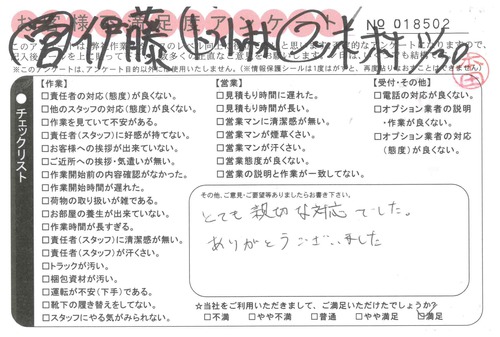 お客様満足度アンケート
No 018502
※このアンケートは、アンケート目的以外には使用いたしません。
チェックリスト
【作業】
□責任者の対応(態度)が良くない。
□他のスタッフの対応(態度)が良くない。
□作業を見ていて不安がある。
□責任者(スタッフ)に好感が持てない。
□お客様への挨拶が出来ていない。
□ご近所への挨拶・気遣いが無い。
□作業開始前の内容確認がなかった。
□作業開始時間が遅れた。
□荷物の取り扱いが雑である。
□お部屋の養生が出来ていない。
□作業時間が長すぎる。
□責任者(スタッフ)に清潔感が無い。
□責任者(スタッフ)が汗くさい。
□トラックが汚い。
□梱包資材が汚い。
□運転が不安(下手)である。
□靴下の履き替えをしてない。
□スタッフにやる気がみられない。
【営業】
□見積もり時間に遅れた。
□見積もり時間が長い。
□営業マンに清潔感が無い。
□営業マンが煙草くさい。
□営業マンが汗くさい。
□営業態度が良くない。
□営業の説明と作業が一致してない。
【受付・その他】
□電話の対応が良くない。
□オプション業者の説明
・作業が良くない。
□オプション業者の対応
(態度)が良くない。
その他、ご意見・ご要望等ありましたらお書き下さい。
とても親切な対応でした。
ありがとうございました
☆当社をご利用いただきまして、ご満足いただけたでしょうか?
□不満 □やや不満 □普通 □やや満足 □満足